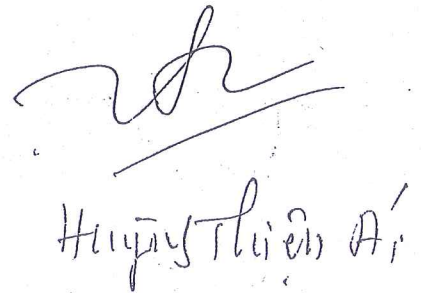 Huỳnh Thiện Ái